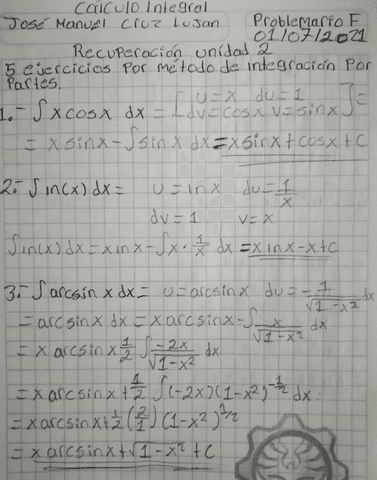 Calculo Integral
José Manuel Cruz Lujan Problemario F.
01/07/2021
Recuperación unidad 2
5 ejercicios por método de integración Por
Partes.
1.- ∫xcosx dx = [u=x du=1
dv=cosx v=sinx] =
= x sinx - ∫sinx dx = xsinx+cosx+C
2.- ∫ln(x)dx = u=lnx du=1/x
dv=1 v=x
∫ln(x)dx = xlnx-∫x·1/x dx = xlnx-x+C
3.- ∫arcsinxdx= u=arcsinx du=-1/√1-x² dx
= arcsinxdx = x arcsinx-∫x/√1-x² dx
= x arcsinx 1/2 ∫-2x/√1-x² dx
= x arcsinx+1/2 ∫(-2x)(1-x²)^-1/2 dx
= xarcsinx+1/2 (2/1) (1-x²)^1/2
= x arcsinx+√1-x² +C